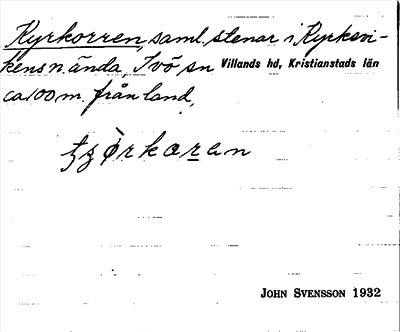 Kyrkorren, saml. stenar i Kyrkvi-
kens n. ända, Ivö sn Villands hd, Kristianstads län
ca 100 m. från land,
JOHN SVENSSON 1932